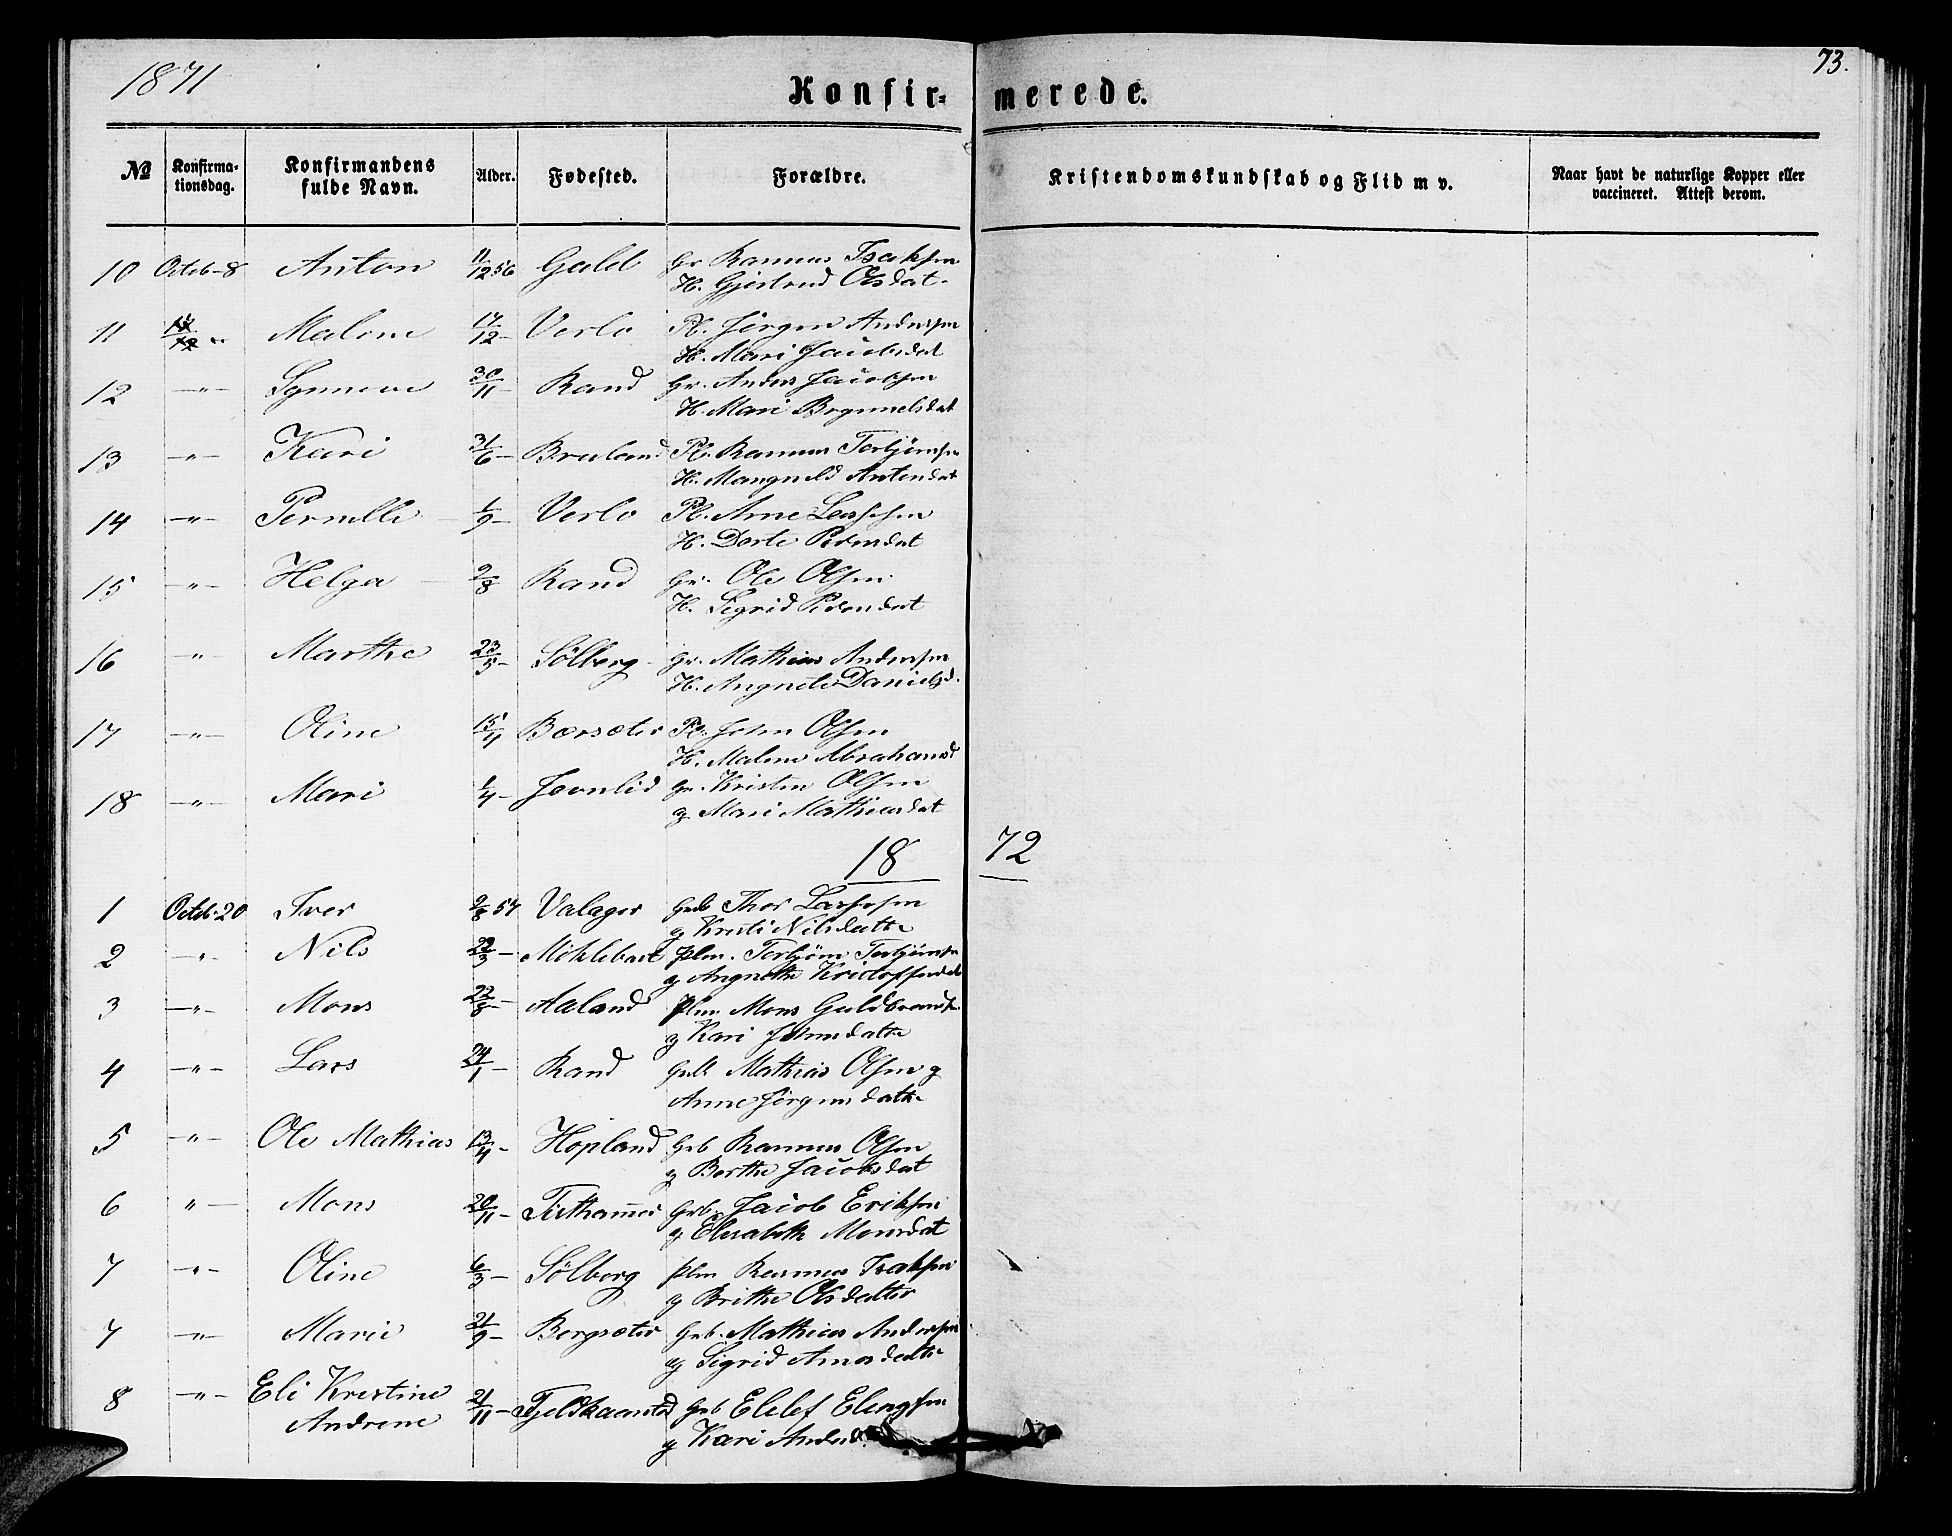 1871
73.
Konfir= merede.
No Konfirma-tionsdag. Konfirmandens fulde Navn. Alder. Fødested. Forældre. Kristendomskundskab og Flid m v. Naar havt de naturlige Kopper eller vaccineret. Attest derom.
10 Octob-8 Anton 11/12 56 Gald Gr Rasmus Isaksen
H. Gjertrud Olsdat.
11 " Malene 17/12 - Verlo Pl. Jörgen Anderssen
H. Mari Jacobsdat
12 -"- Synneve 30/11 - Rand Gr. Anders Jacobsen
H. Mari Brynnelsdat
13 -"- Kari 31/6 - Bruland Pl. Rasmus Torbjörnsen
H. Mangneld Antondat
14 -"- Pernelle 1/9 - Verlo Pl. Arne Larssen
H. Dorte Pedersdat
15 -"- Helga 2/8 Rand Gr. Ole Olsen
H. Sigrid Pedersdat
16 " Marthe 23/5 - Sölberg Gr. Mathias Andersen
H. Angnete Danielsd.
17 -"- Oline 15/4 Borsæter Pl. John Olsen
H. Malene Abrahamsd
18 -"- Mari 1/4 - Jovnlid Gr. Kristen Olsen
g Mari Mathiasdat
18 72
1 Octob. 20 Iver 2/8 57 Valager Grb Thor Larssen
g Kristi Nilsdatter
2 -"- Nils 22/3 - Mÿklebust plm. Torbjörn Torbjörnsen
g Angnethe Kristoffersdat
3 -"- Mons 22/8 - Aaland plm Mons Guldbrands.
g Kari Johnsdatter
4 -"- Lars 24/1 - Rand Grb Mathias Olsen g
Anne Jörgensdatter
5 -"- Ole Mathias 13/4 - Hopland Grb Rasmus Olsen
g Berthe Jacobsdat
6 "- Mons 20/11 - Tisthammer Grb. Jacob Eriksen
g Elisabeth Monsdat
7 -"- Oline 6/3 - Sölberg plm Rasmus Isaksen
g Brithe Olsdatter
7 -"- Marie 21/9 - Bergsæter Grb. Mathias Andersen
og Sigrid Arnesdatter
8 -"- Eli Kristine 21/11 - Tjeldkaarstad Grb Ellef Elingsen
Andrene g Kari Andersd.